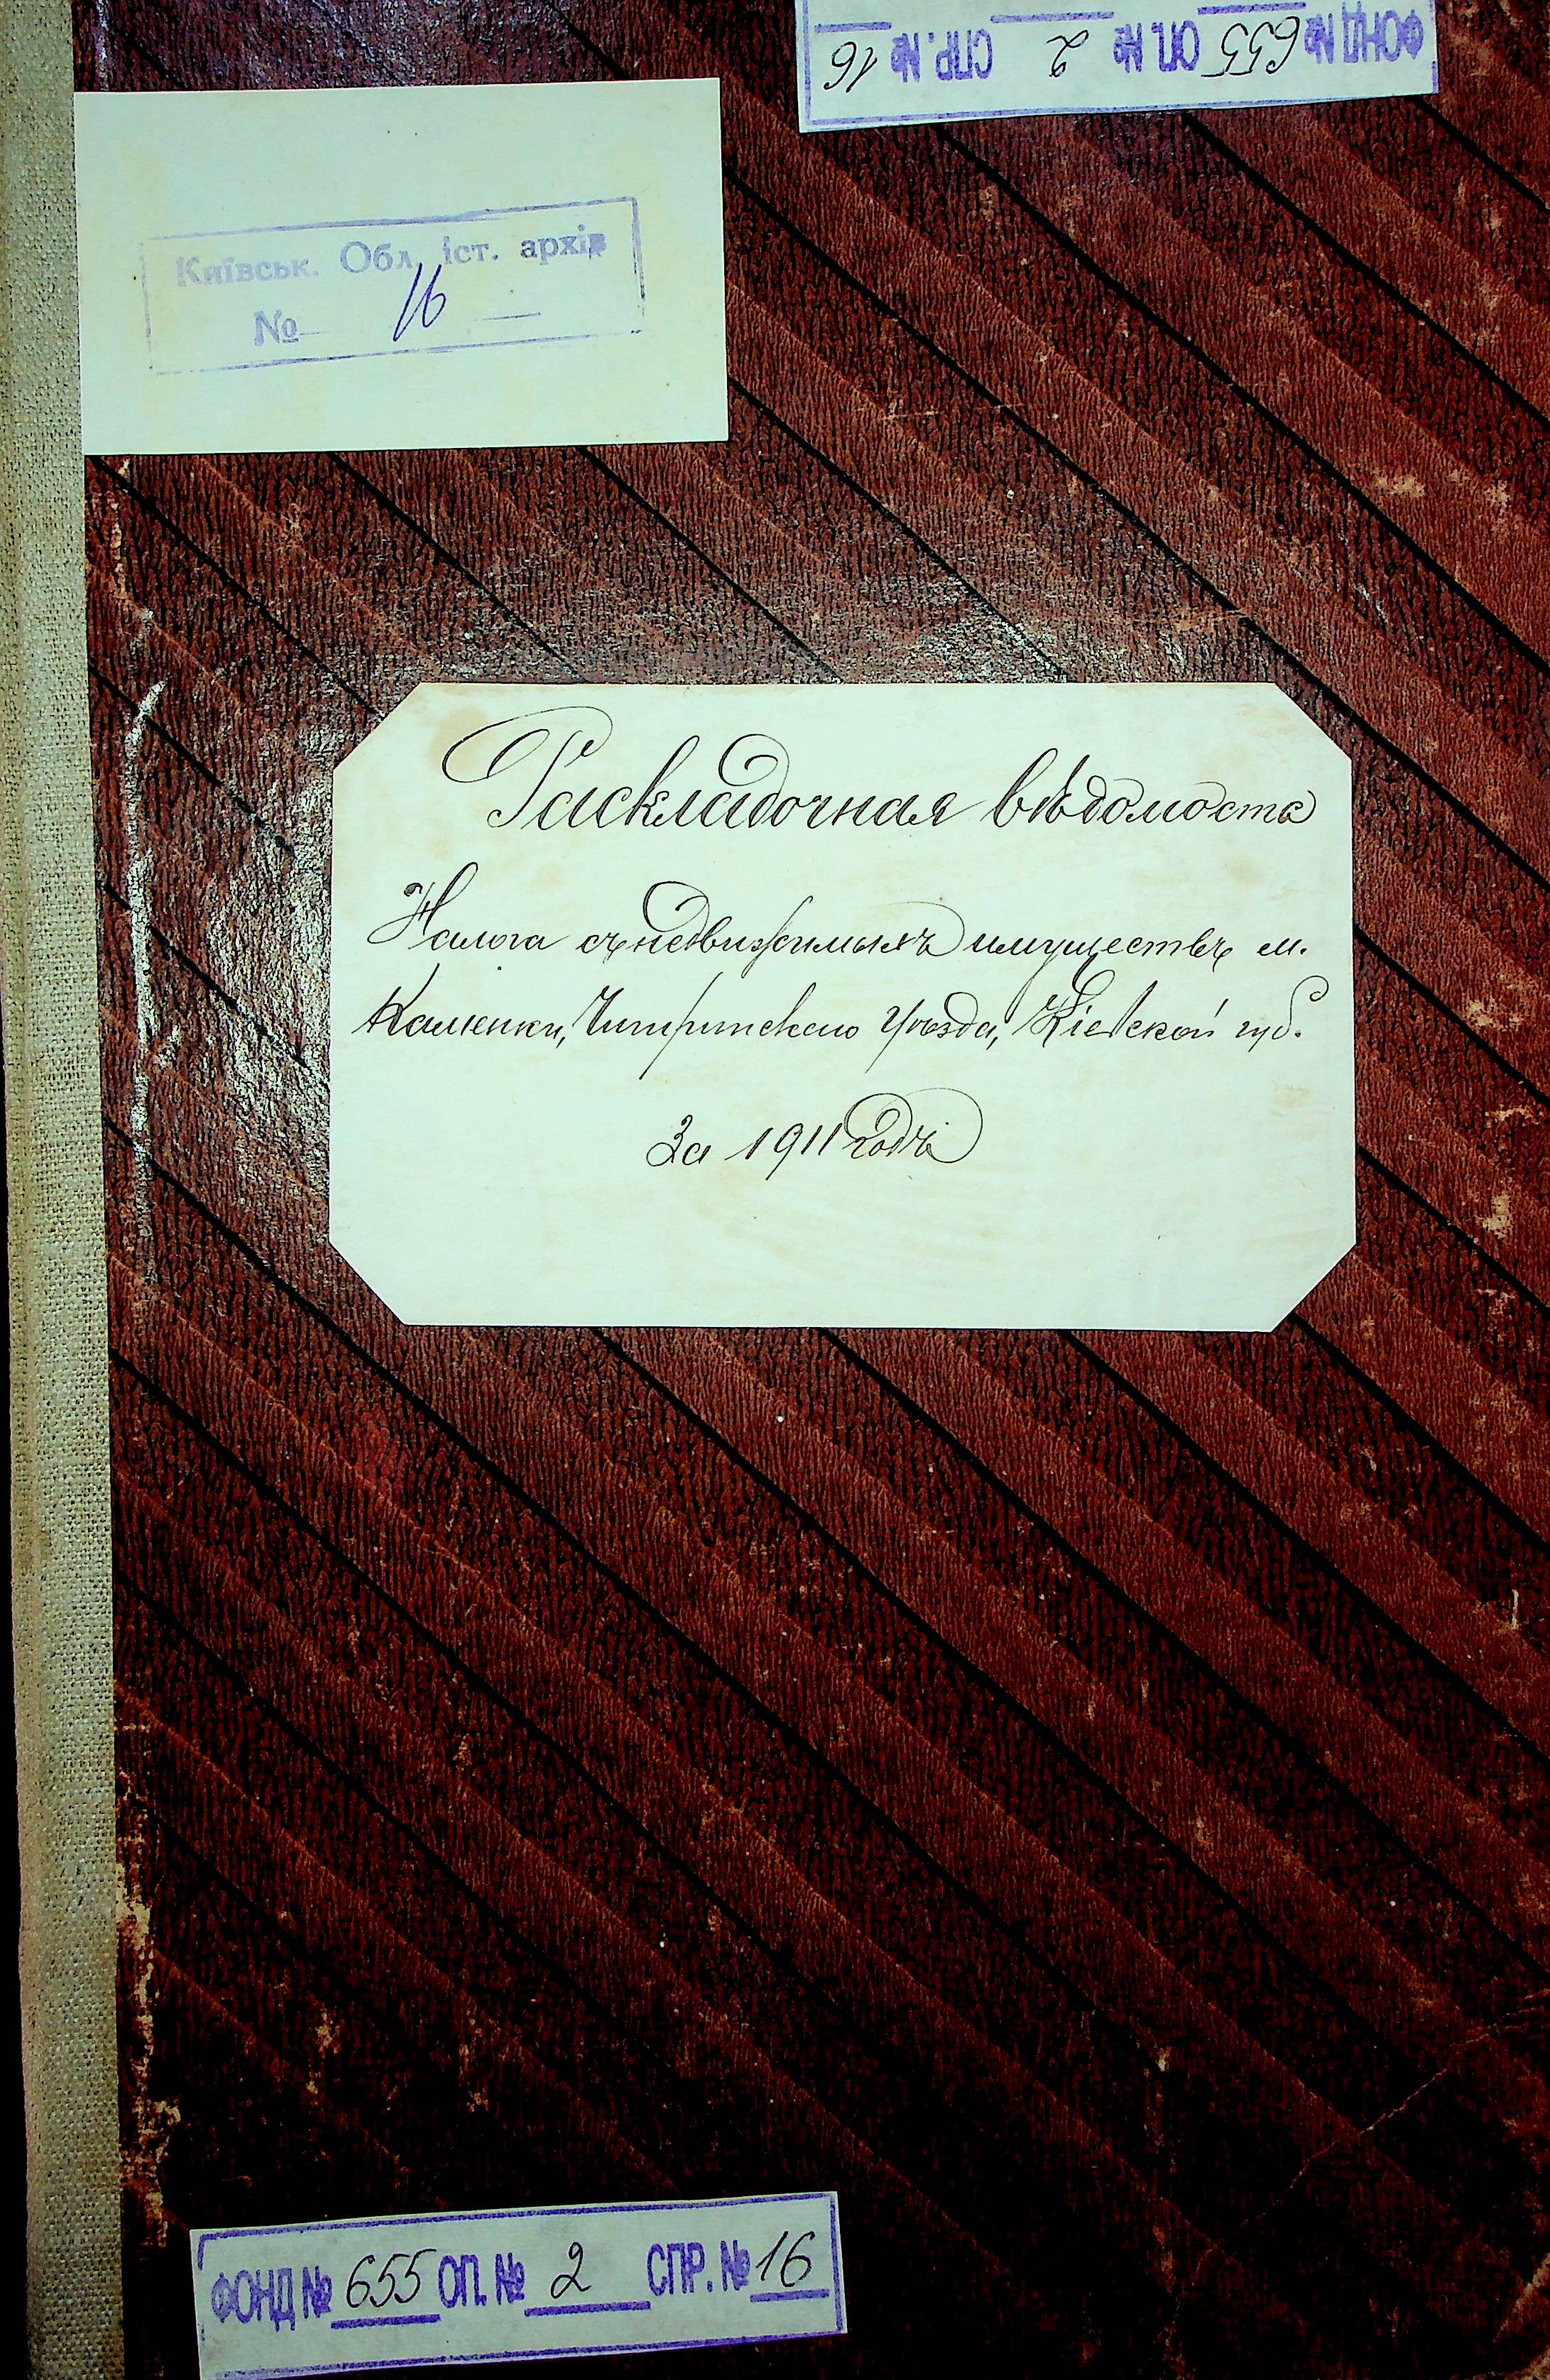 ФОНД № 655 ОП. № 2 СПР. № 16
Київськ. Обл. іст. архів
№ 16
Раскладочная вѣдомость
Налога съ недвижимыхъ имуществъ м.
Каменки, Чигиринскаго уѣзда, Кіевской губ.
За 1911 годъ
ФОНД № 655 ОП. № 2 СПР. № 16